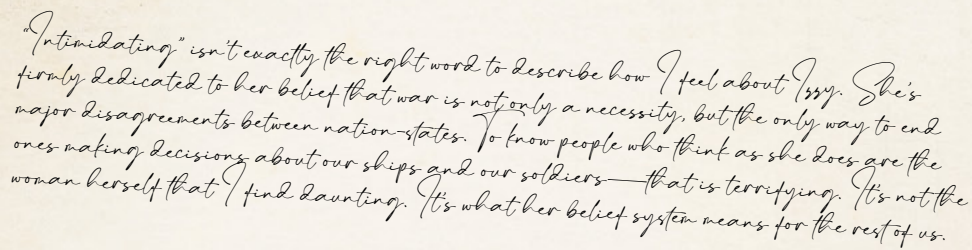 "Intimidating" isn't exactly the right word to describe how I feel about Issy. She's
firmly dedicated to her belief that war is not only a necessity, but the only way to end
major disagreements between nation-states. To know people who think as she does are the
ones making decisions about our ships and our soldiers—that is terrifying. It's not the
woman herself that I find daunting. It's what her belief system means for the rest of us.